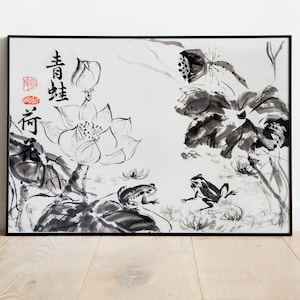 青蛙
荷花